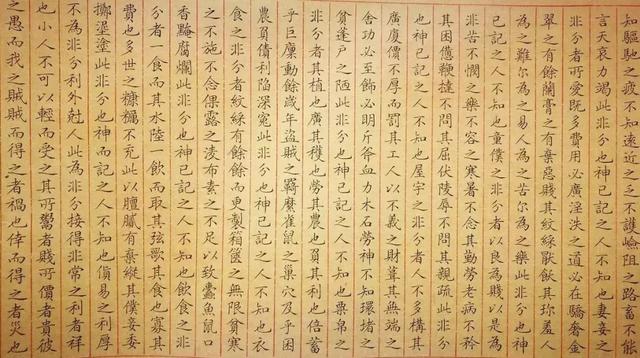 知驅馳之疲不知遠近之乏不護嶮阻之路畜不能
言天哀力竭此非分也神已記之人不知也妻妾之
非分者可愛既多費用必廣淫泆之道必在驕奢金
翠之有餘蘭膏之有棄惡賤其紋綵猒飫其珎羞人
為之難尔為之易人為之苦尔為之樂此非分也神
已記之人不知也童僕之非分者以良為賤以是為
非苦不憫之樂不容之寒暑不念其勤勞老病不矜
其困憊鞭撻不問其屈伏陵辱不問其親疏此非分
也神已記之人不知也屋宇之非分者人不多構其
廣廈價不厚而罰其工人以不義之財葺其無端之
舍功必至飾必明斤斧血力木石勞神不知環堵之
貧蓬戶之陋此非分也神已記之人不知也粟帛之
非分者其植也廣其穫也勞其農也負其利也倍蓄
乎巨廩動餘歲年盜賊之羇縻雀鼠之巢穴及乎困
農負債利陷深冤此非分也神已記之人不知也衣
食之非分者紋綵有餘餘而更製箱篋之無限貧寒
之不施不念倮露之凌布素之不足以致蠹魚鼠口
香黦腐爛此非分也神已記之人不知也飲食之非
分者一食而其水陸一飲而取其弦歌其食也寡其
費也多世之糠糲不充此以膻膩有棄縱其僕妾委
擲湼塗此非分也神而記之人不知也貨易之利厚
不為非分利外尅人此為非分接得非常之利者祥
也小人不可以輕而受之其所鬻者賤可價者貴彼
之愚而我之賊賊而得之者禍也倖而得之者災也